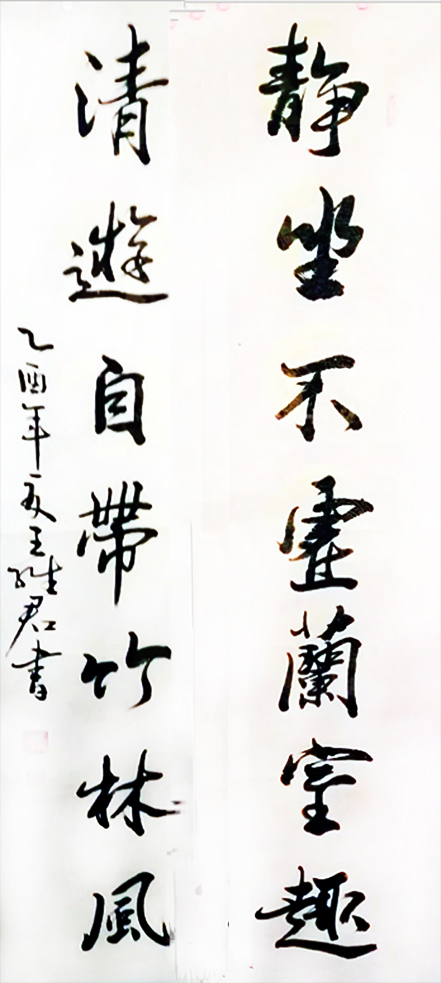 靜坐不虛蘭室趣
清遊自帶竹林風
乙酉年夏王維君書